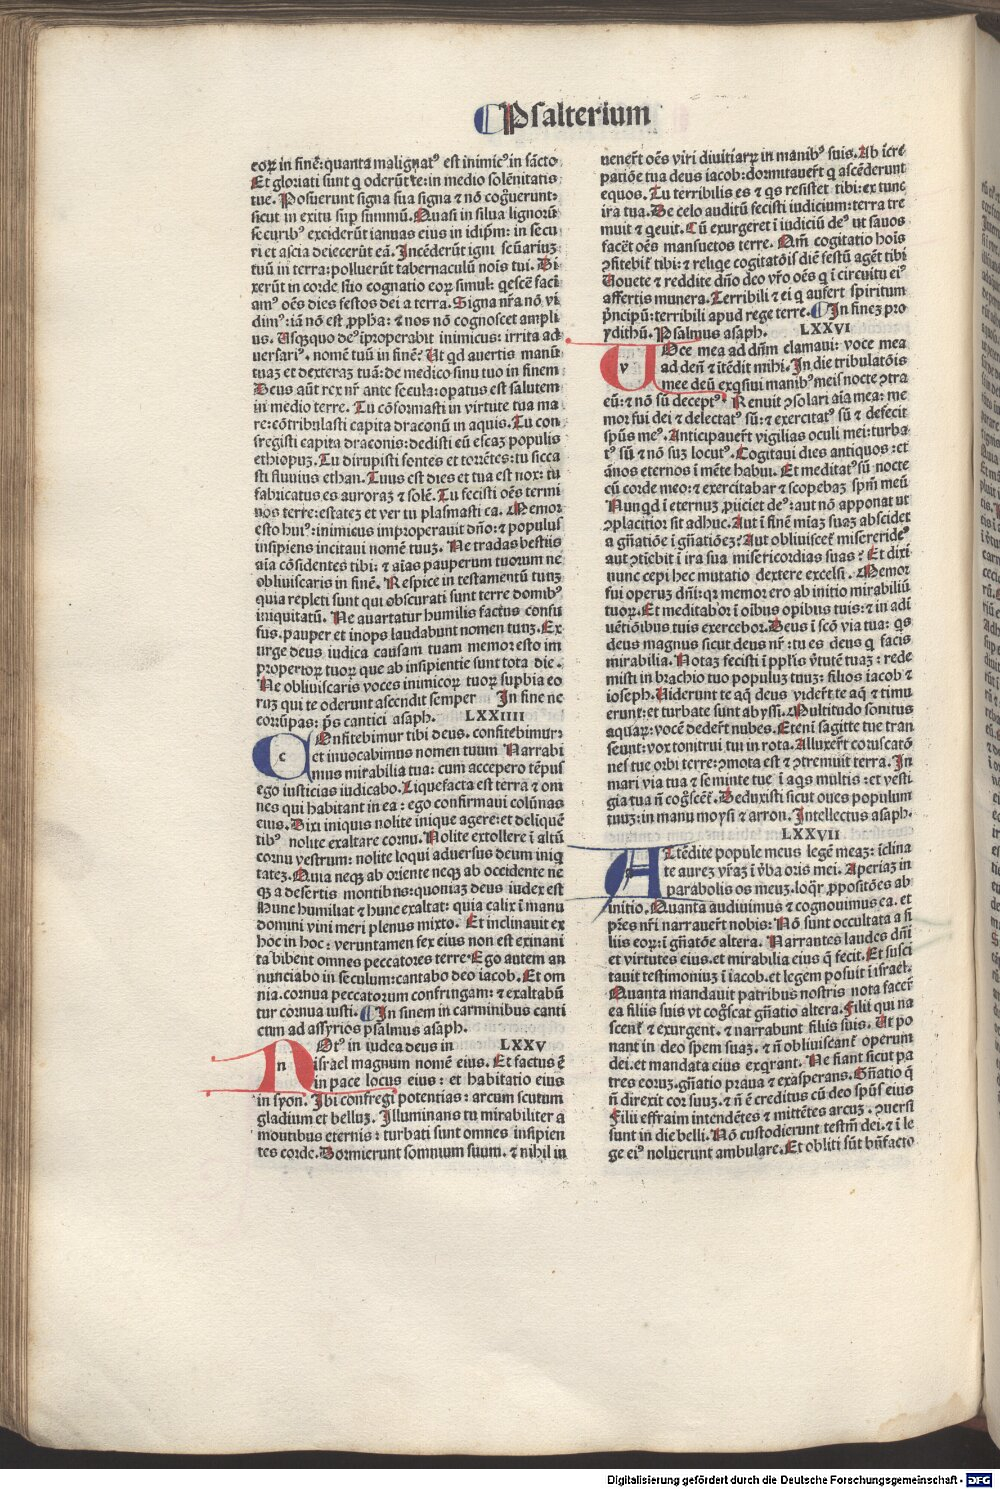 Psalterium
eoꝝ in finē: quanta malignatꝰ est inimicꝰ in sācto
Et gloriati sunt q̄ oderūt te: in medio solēnitatis
tue. Posuerunt signa sua signa ⁊ nō cog̃uerunt:
sicut in exitu sup summū. Quasi in silua lignorū
securibꝰ exciderūt ianuas eius in idip̄m: in secu
ri et ascia deiecerūt eā. Incēderūt igni scūariuꝫ
tuū in terra: polluerūt tabernaculū nois tui. Di
xerūt in corde suo cognatio eoꝝ simul: qescē faci
amꝰ oēs dies festos dei a terra. Signa nr̄a nō vi
dimꝰ: iā nō est ꝓpha: ⁊ nos nō cognoscet ampli
us. Usqꝫquo deꝰ īproperabit inimicus: irrita ad
uersariꝰ. nomē tuū in finē? Ut qd auertis manū
tuaꝫ et dexteraꝫ tuā: de medio sinu tuo in finem
Deus aūt rex nr̄ ante secula: opatus est salutem
in medio terre. Tu cōformasti in virtute tua ma
re: cōtribulasti capita draconū in aquis. Tu con
fregisti capita draconis: dedisti eū escaꝫ populis
ethiopuꝫ. Tu dirupisti fontes et torrētes: tu sicca
sti fluuius ethan. Tuus est dies et tua est nox: tu
fabricatus es auroraꝫ ⁊ solē. Tu fecisti oēs termi
nos terre: estateꝫ et ver tu plasmasti ea. Memor
esto huiꝰ: inimicus improperauit dn̄o: ⁊ populus
insipiens incitaui nomē tuuꝫ. Ne tradas bestiis
aia cōfidentes tibi: ⁊ aias pauperum tuorum ne
obliuiscaris in finē. Respice in testamentū tuuꝫ
quia repleti sunt qui obscurati sunt terre domibꝰ
iniquitatū. Ne auartatur humilis factus confu
fus. pauper et inops laudabunt nomen tuuꝫ. Ex
urge deus iudica causam tuam memor esto im
propertoꝝ tuoꝝ que ab insipiente sunt tota die.
Ne obliuiscaris voces inimicoꝝ tuoꝝ supbia eo
ruꝫ qui te oderunt ascendit semper In fine ne
corrūpas: ps cantici asaph. LXXIIII
COnfitebimur tibi deus. confitebimur:
et inuocabimus nomen tuum Narrabi
mus mirabilia tua: cum accepero tēpus
ego iusticias iudicabo. Liquefacta est terra ⁊ om
nes qui habitant in ea: ego confirmaui colūnas
eius. Dixi iniquis nolite inique agere: et deliquē
tibꝰ nolite exaltare cornu. Nolite extollere ī altū
cornu vestrum: nolite loqui aduersus deum iniq̄
tateꝫ. Quia neqꝫ ab oriente neqꝫ ab occidente ne
qꝫ a desertis montibus: quoniaꝫ deus iudex est
Hunc humiliat ⁊ hunc exaltat: quia calix ī manu
domini vini meri plenus mixto. Et inclinauit ex
hoc in hoc: veruntamen fex eius non est exinani
ta bibent omnes peccatores terre Ego autem an
nunciabo in seculum: cantabo deo iacob. Et om
nia. cornua peccatorum confringam: ⁊ exaltabū
tur cornua iusti. In finem in carminibus canti
cum ad assyrios psalmus asaph.
NOtꝰ in iudea deus in LXXV
israel magnum nomē eius. Et factus ē
in pace locus eius: et habitatio eius
in syon. Ibi confregi potentias: arcum scutum
gladium et belluꝫ. Illuminans tu mirabiliter a
moutibus eternis: turbati sunt omnes insipien
tes corde. Dormierunt somnum suum. ⁊ nihil in
uener̄t oēs viri diuitiarꝝ in manibꝰ suis. Ab īcre
patiōe tua deus iacob: dormitauer̄t q̄ ascēderunt
equos. Tu terribilis es ⁊ qs resistet tibi: ex tunc
ira tua. De celo auditū fecisti iudicium: terra tre
muit ⁊ qeuit. Cū exurgeret ī iudiciū deꝰ ut sauos
facēt oēs mansuetos terre. Qm̄ cogitatio hois
ꝯfitebit̄ tibi: ⁊ reliqe cogitatōis diē festū agēt tibi
Uouete ⁊ reddite dn̄o deo vr̄o oēs q̄ ī circuitu eiꝰ
affertis munera. Terribili ⁊ ei q̄ aufert spiritum
pn̄cipū: terribili apud rege terre. In fineꝫ pro
ydithū. Psalmus asaph. LXXVI
UOce mea ad dn̄m clamaui: voce mea
ad deū ⁊ itēdit mihi. In die tribulatōis
mee deū exqsiui manibꝰ meis nocte ꝯtra
eū: ⁊ nō sū deceptꝰ. Renuit ꝯsolari aia mea: me
mor fui dei ⁊ delectatꝰ sū: ⁊ exercitatꝰ sū ⁊ defecit
spūs meꝰ. Anticipauer̄t vigilias oculi mei: turba
tꝰ sū ⁊ nō suꝫ locutꝰ. Cogitaui dies antiquos: et
ānos eternos ī mēte habui. Et meditatꝰ sū nocte
cū corde meo: ⁊ exercitabar ⁊ scopebaꝫ spm̄ meū
Nunqd ī eternuꝫ ꝓiiciet deꝰ: aut nō apponat ut
ꝯplacitior sit adhuc. Aut ī finē miaꝫ suaꝫ abscidet
a gn̄atiōe ī gn̄atiōeꝫ? Aut obliuiscet̄ misererideꝰ
aut ꝯtiebit ī ira sua misericordias suas? Et dixi
nunc cepi hec mutatio dextere excelsi. Memor
fui operuꝫ dn̄i: qꝛ memor ero ab initio mirabiliū
tuoꝝ. Et meditabor ī oibus opibus tuis: ⁊ in adī
uētiōibus tuis exercebor. Deus ī scō via tua: qs
deus magnus sicut deus nr̄: tu es deus q̄ facis
mirabilia. Notaꝫ fecisti ī pplīs v̄tutē tuaꝫ: rede
misti in brachio tuo populuꝫ tuuꝫ: filios iacob ⁊
ioseph. Uiderunt te aq̄ deus vider̄t te aq̄ ⁊ timu
erunt: et turbate sunt abyssi. Multitudo sonitus
aquaꝝ: vocē deder̄t nubes. Etenī sagitte tue tran
seunt: vox tonitrui tui in rota. Alluxer̄t coruscatō
nes tue orbi terre: ꝯmota est ⁊ ꝯtremuit terra. In
mari via tua ⁊ semite tue ī aqs multis: et vesti
gia tua n̄ cog̃scēt̄. Deduxisti sicut oues populum
tuuꝫ: in manu moysi ⁊ arron. Intellectus asaph.
LXXVII
ATtēdite popule meus legē meaꝫ: īclina
te aureꝫ vr̄aꝫ ī v̄ba oris mei. Aperiaꝫ in
parabolis os meuꝫ. loqr̄ ꝓpositōes ab
initio. Quanta audiuimus ⁊ cognouimus ea. et
pr̄es nr̄i narrauer̄t nobis: Nō sunt occultata a fi
liis eoꝝ: ī gn̄atōe altera. Narrantes laudes dn̄i
et virtutes eius. et mirabilia eius q̄ fecit. Et susci
tauit testimoniuꝫ ī iacob. et legem posuit ī israel.
Quanta mandauit patribus nostris nota facer̄
ea filiis suis vt cog̃scat gn̄atio altera. Filii qui na
scent̄ ⁊ exurgent. ⁊ narrabunt filiis suis. Ut po
nant in deo spem suaꝫ. ⁊ n̄ obliuiscant̄ operum
dei. et mandata eius exqrant. Ne fiant sicut pa
tres eoruꝫ. gn̄atio praua ⁊ exasperans. Gn̄atio q̄
n̄ direxit cor suuꝫ. ⁊ n̄ ē creditus cū deo spūs eius
Filii effraim intendētes ⁊ mittētes arcuꝫ. ꝯuersi
sunt in die belli. Nō custodierunt testm̄ dei. ⁊ ī le
ge eiꝰ noluerunt ambulare. Et obliti sūt bn̄facto
Digitalisierung gefördert durch die Deutsche Forschungsgemeinschaft - DFG